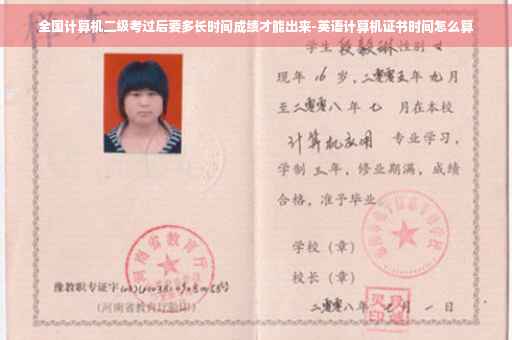 全国计算机二级考过后要多长时间成绩才能出来-英语计算机证书时间怎么算
学生 段毅琳 性别 女
现年 16 岁，二零零五年 九月
至二零零八年 七 月在本校
计算机应用 专业学习，
学制 三 年，修业期满，成绩
合格，准予毕业
学校（章）
校长（章）
河南省教育厅
豫教职专证字
（河南省教育厅验印）
二零零八年 七 月 一 日